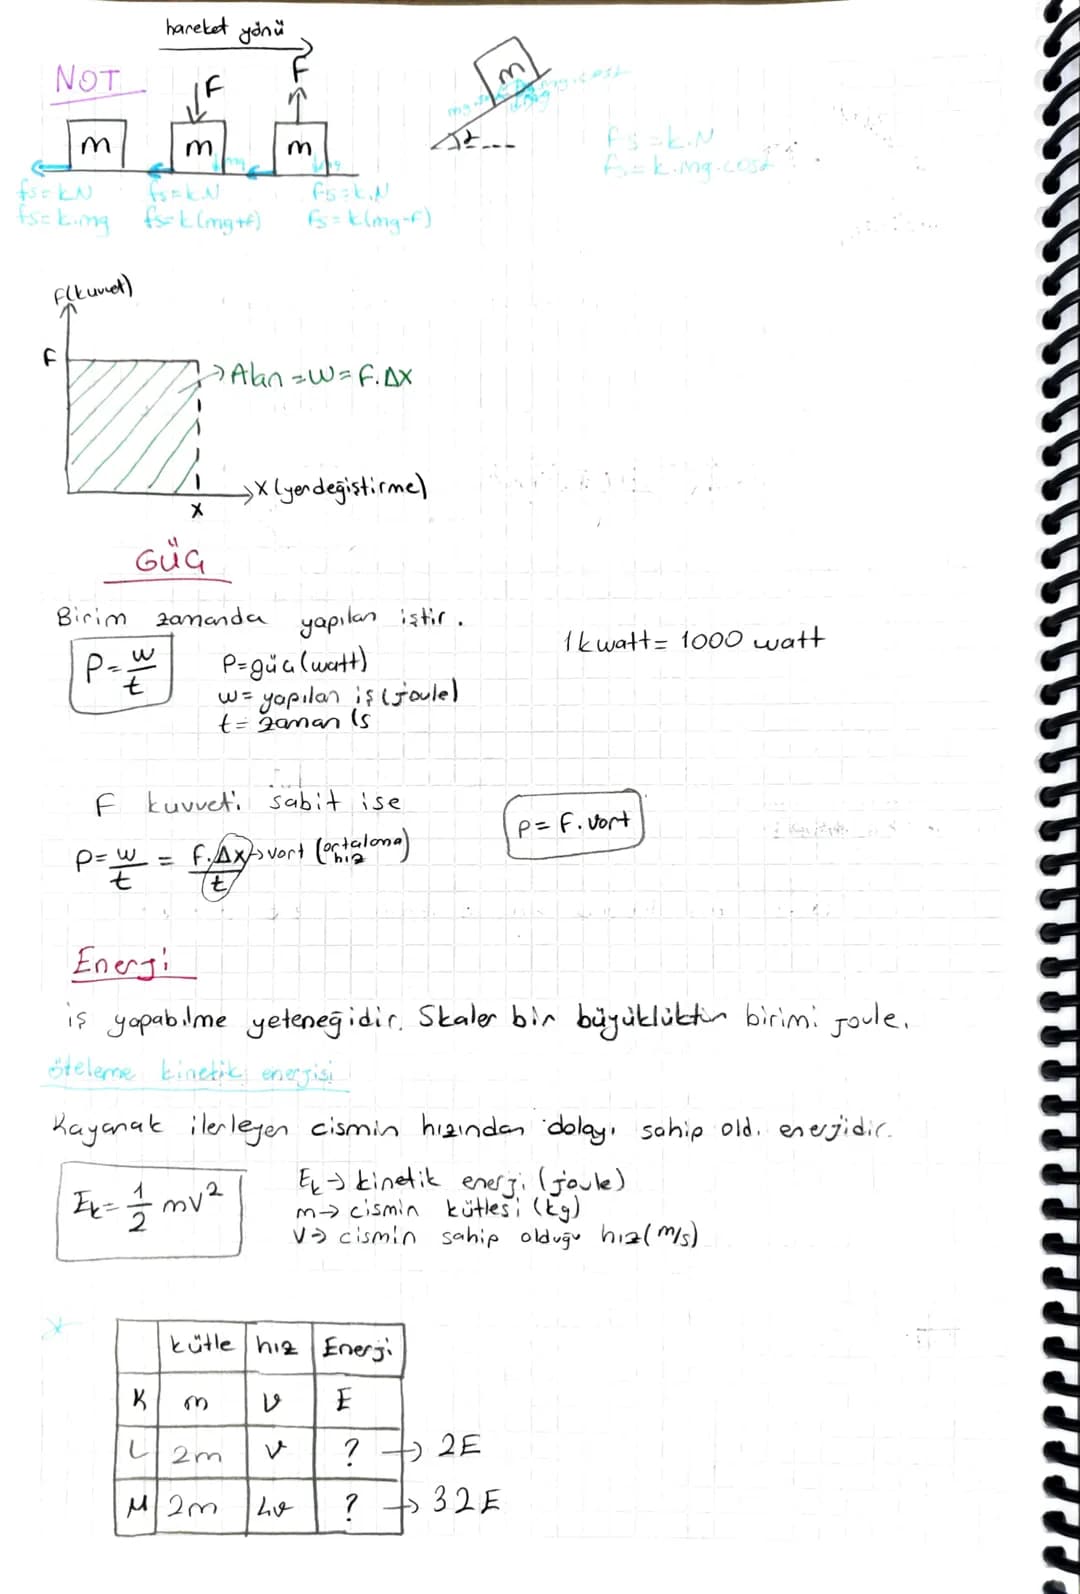 hareket yönü
NOT
F
F
m
m
m
m
mg
mg
mg.cosα
fs=k.N
fs=k.mg
fs=k.N
fs=k(mg+F)
fs=k.N
fs=k(mg-F)
fs=k.N
fs=k.mg.cosα
F(kuvvet)
F
→Alan=W=F.Δx
x
x(yerdeğiştirme)
GÜÇ
Birim zamanda yapılan iştir.
P=w/t
P=güç(watt)
w=yapılan iş(joule)
t=zaman(s
1kwatt=1000 watt
F kuvveti sabit ise
P=w/t = F.Δx/t →vort (ortalama hız)
P=F.vort
Energi
iş yapabilme yeteneğidir. Skaler bir büyüklüktür birimi joule.
öteleme kinetik energisi
Kayarak ilerleyen cismin hızından dolayı sahip old. enerjidir.
Ek=1/2 mv²
Ek→kinetik energi (joule)
m→cismin kütlesi (kg)
v→cismin sahip olduğu hız(m/s)
kütle hız Energi
K m v E
L 2m v ? → 2E
M 2m 4v ? → 32E